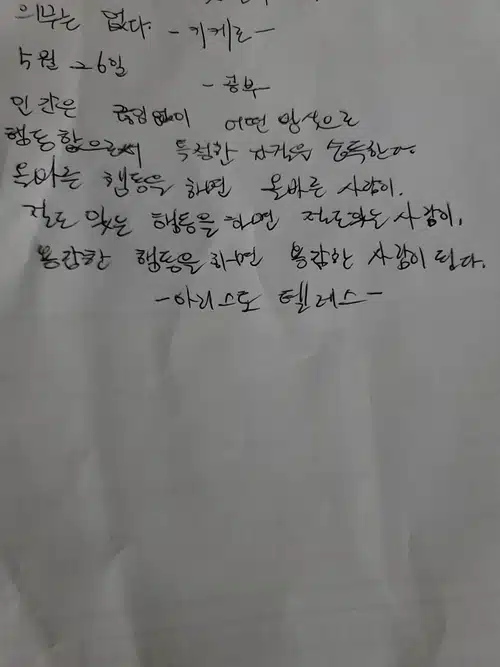 의무는 없다. -키케로-
5월 26일
-공부
인간은 끊임없이 어떤 방식으로
행동함으로써 특정한 자질을 습득한다.
올바른 행동을 하면 올바른 사람이.
절도 있는 행동을 하면 절도있는 사람이,
용감한 행동을 하면 용감한 사람이 된다.
-아리스토 텔레스-